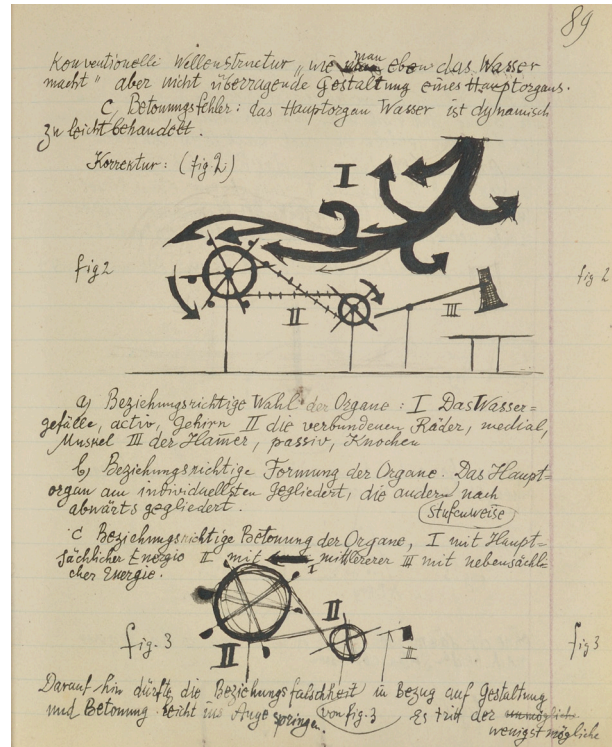 89
Konventionelle Wellenstructur „wie man eben das Wasser
macht" aber nicht überragende Gestaltung eines Hauptorgans.
C, Betonungsfehler: das Hauptorgan Wasser ist dynamisch
zu leicht behandelt.
Korrektur: (fig 2)
I
fig 2
fig 2
II
III
a) Beziehungsrichtige Wahl der Organe: I Das Wasser=
gefälle, activ, Gehirn II die verbundenen Räder, medial,
Muskel III der Hamer, passiv, Knochen
b) Beziehungsrichtige Formung der Organe. Das Haupt=
organ am individuellsten gegliedert, die andern nach
abwärts gegliedert. stufenweise
C Beziehungsrichtige Betonung der Organe, I mit Haupt=
sächlicher Energie II mit mittlerer III mit nebensächli=
cher Energie.
I
II
fig. 3
II
III
fig 3
Darauf hin dürfte die Beziehungsfalschheit in Bezug auf Gestaltung
und Betonung leicht ins Auge springen. von fig. 3 Es tritt der
wenigst mögliche